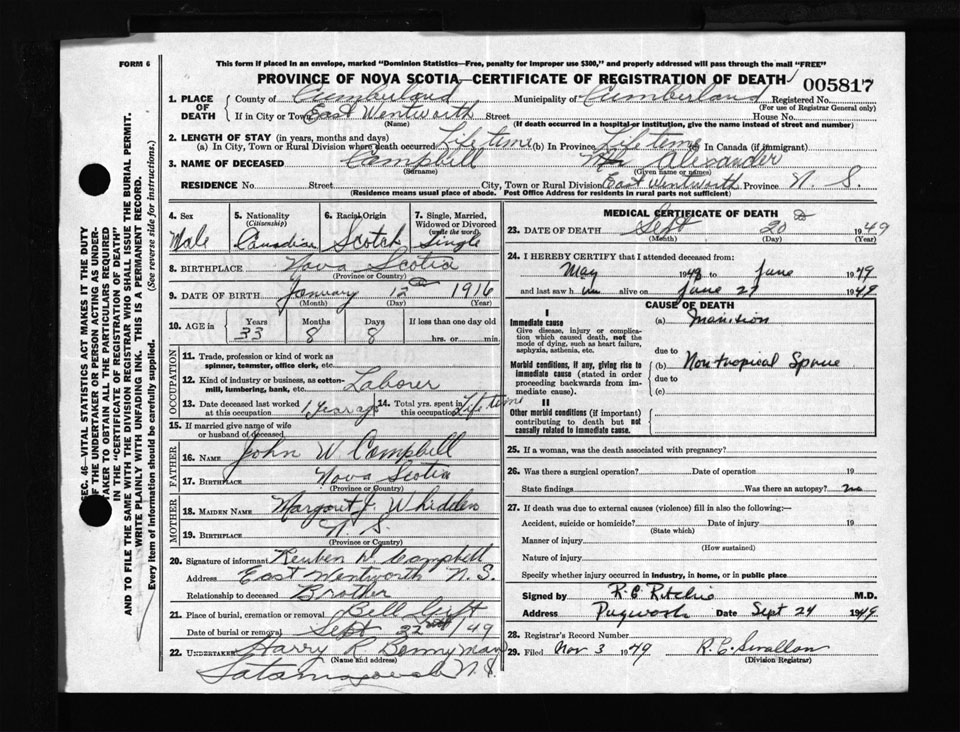 FORM 6
This form if placed in an envelope, marked "Dominion Statistics—Free, penalty for improper use $300," and properly addressed will pass through the mail "FREE"
PROVINCE OF NOVA SCOTIA—CERTIFICATE OF REGISTRATION OF DEATH
005817
1. PLACE OF DEATH
County of Cumberland Municipality of Cumberland Registered No.
(For use of Registrar General only)
If in City or Town East Wentworth Street House No.
(Name) (If death occurred in a hospital or institution, give the name instead of street and number)
2. LENGTH OF STAY (in years, months and days)
(a) In City, Town or Rural Division where death occurred Life time (b) In Province Life time (c) In Canada (if immigrant)
3. NAME OF DECEASED Campbell Alexander
(Surname) (Given name or names)
RESIDENCE No. Street City, Town or Rural Division East Wentworth Province N. S.
(Residence means usual place of abode. Post Office Address for residents in rural parts not sufficient)
4. Sex Male
5. Nationality (Citizenship) Canadian
6. Racial Origin Scotch
7. Single, Married, Widowed or Divorced (write the word) Single
8. BIRTHPLACE Nova Scotia
(Province or Country)
9. DATE OF BIRTH January 12 1916
(Month) (Day) (Year)
10. AGE in Years Months Days If less than one day old
33 8 8 hrs. or min.
OCCUPATION
11. Trade, profession or kind of work as spinner, teamster, office clerk, etc.
12. Kind of industry or business, as cotton-mill, lumbering, bank, etc. Laborer
13. Date deceased last worked at this occupation 1 year ago
14. Total yrs. spent in this occupation Life time
15. If married give name of wife or husband of deceased
FATHER
16. NAME John W Campbell
17. BIRTHPLACE Nova Scotia
(Province or Country)
MOTHER
18. MAIDEN NAME Margaret J. Whidden
19. BIRTHPLACE N. S.
(Province or Country)
20. Signature of informant Reuben D. Campbell
Address East Wentworth N. S.
Relationship to deceased Brother
21. Place of burial, cremation or removal
Date of burial or removal Sept 22nd/49
22. UNDERTAKER Harry R Bennyman
(Name and address)
N. S.
MEDICAL CERTIFICATE OF DEATH
23. DATE OF DEATH Sept 20 1949
(Month) (Day) (Year)
24. I HEREBY CERTIFY that I attended deceased from:
May 1948 to June 1949
and last saw him alive on June 27 1949
CAUSE OF DEATH
I
Immediate cause
Give disease, injury or complication which caused death, not the mode of dying, such as heart failure, asphyxia, asthenia, etc.
(a)
due to
Morbid conditions, if any, giving rise to immediate cause (stated in order proceeding backwards from immediate cause).
(b) Non tropical Sprue
due to
(c)
II
Other morbid conditions (if important) contributing to death but not causally related to immediate cause.
25. If a woman, was the death associated with pregnancy?
26. Was there a surgical operation? Date of operation 19
State findings Was there an autopsy? no
27. If death was due to external causes (violence) fill in also the following:—
Accident, suicide or homicide? Date of injury 19
(State which)
Manner of injury
(How sustained)
Nature of injury
Specify whether injury occurred in industry, in home, or in public place
Signed by R. C. Ritchie M.D.
Address Pugwash Date Sept 24 1949
28. Registrar's Record Number
29. Filed Nov 3 1949 R. C. Swallow
(Division Registrar)
SEC. 46—VITAL STATISTICS ACT MAKES IT THE DUTY
OF THE UNDERTAKER OR PERSON ACTING AS UNDER-
TAKER TO OBTAIN ALL THE PARTICULARS REQUIRED
IN THE "CERTIFICATE OF REGISTRATION OF DEATH"
AND TO FILE THE SAME WITH THE DIVISION REGISTRAR WHO SHALL ISSUE THE BURIAL PERMIT.
WRITE PLAINLY WITH UNFADING INK. THIS IS A PERMANENT RECORD.
Every item of information should be carefully supplied. (See reverse side for instructions.)